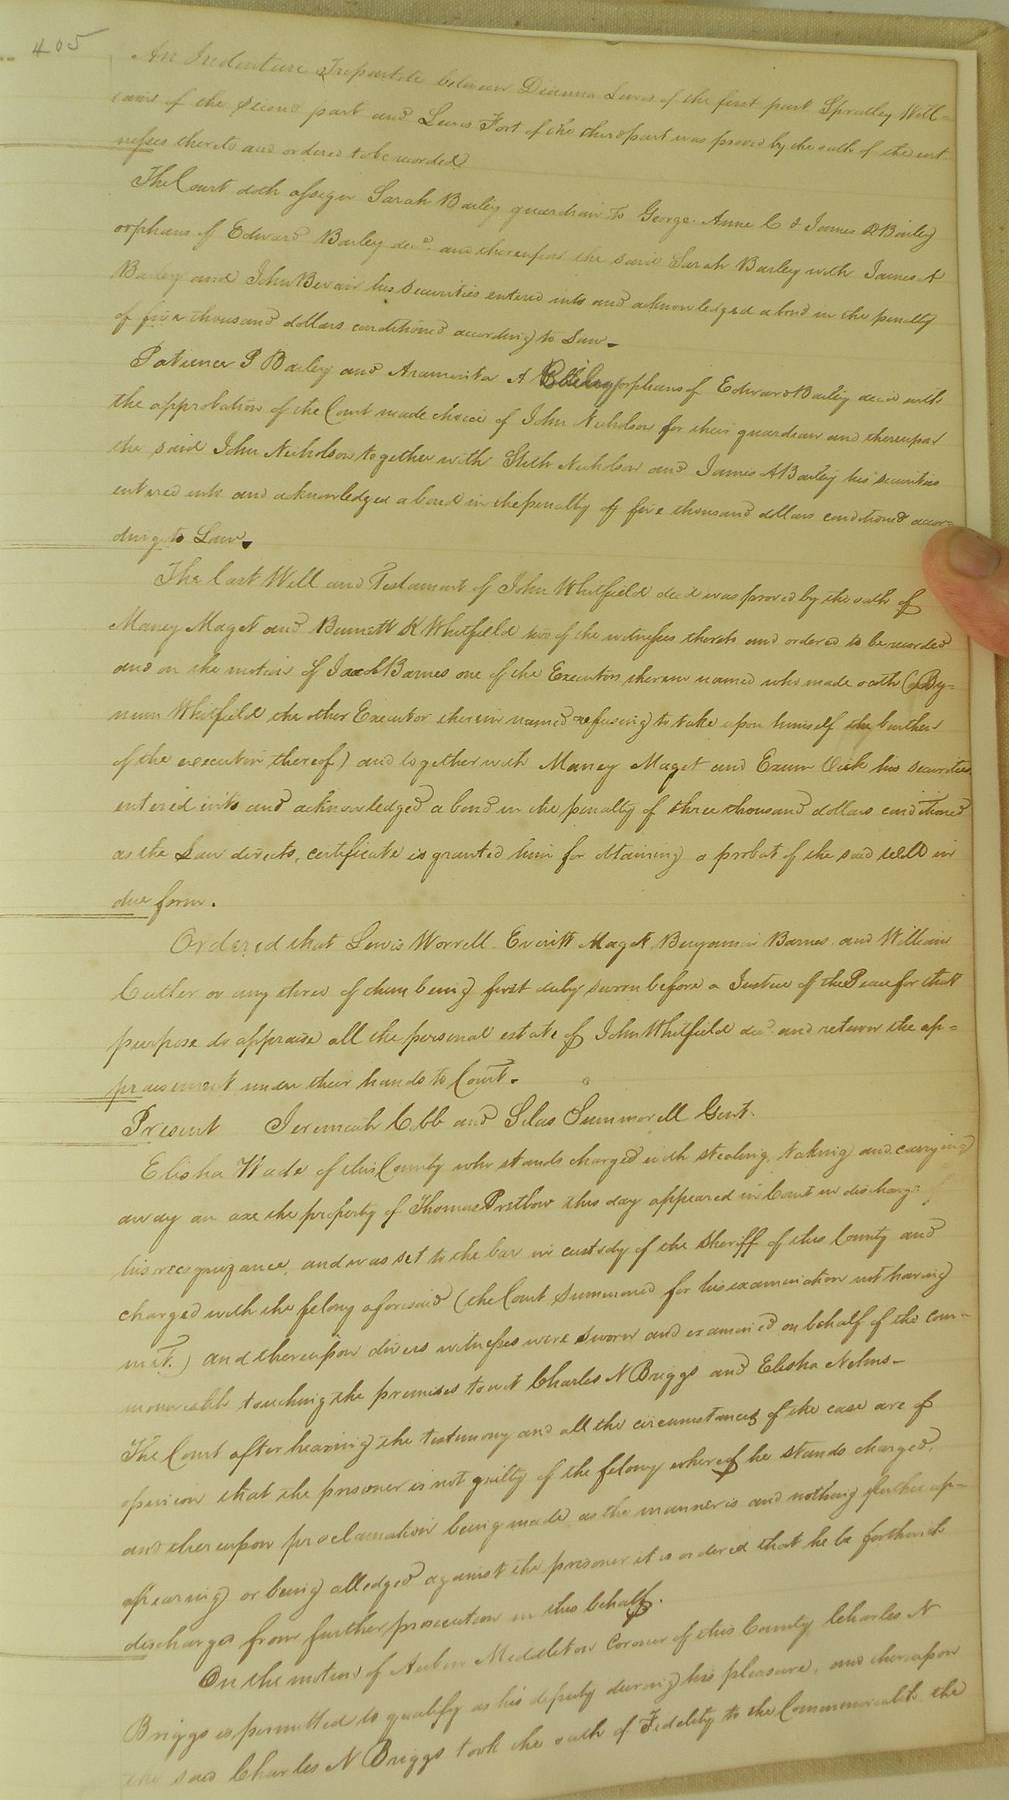 405
An Indenture Tripartite between Dianna Lewis of the first part Spratley Will=
iams of the second part and Lewis Fort of the third part was proved by the oath of the wit
nesses thereto and ordered to be recorded
The Court doth assign Sarah Bailey guardian to George. Anne C & James D Bailey
orphans of Edward Bailey decd. and thereupon the said Sarah Bailey with James A
Bailey and John Bevain his securities entered into and acknowledged a bond in the penalty
of five thousand dollars conditioned according to Law.
Patience P Bailey and Araminta A Bailey orphans of Edward Bailey decd with
the approbation of the Court made choice of John Nicholson for their guardian and thereupon
the said John Nicholson together with Nicholson and James A Bailey his securities
entered into and acknowledged a bond in the penalty of five thousand dollars conditioned accor=
ding to Law.
The last Will and Testament of John Whitfield decd was proved by the oath of
Maney Maget and Bennett K Whitfield two of the witnesses thereto and ordered to be recorded
and on the motion of Jacob Barnes one of the Executors therein named who made oath (By=
num Whitfield the other Executor therein named refusing to take upon himself the burthen
of the execution thereof) and together with Maney Maget and Exum his securities
entered into and acknowledged a bond in the penalty of three thousand dollars conditioned
as the Law directs, certificate is granted him for obtaining a probat of the said Will in
due form.
Ordered that Lewis Worrell Everitt Maget Benjamin Barnes and William
Cutler or any three of them being first duly sworn before a Justice of the Peace for that
purpose do appraise all the personal estate of John Whitfield decd and return the ap=
praisement under their hands to Court.
Present Jeremiah Cobb and Silas Summerell Gent.
Elisha Wade of this County who stands charged with stealing, taking and carrying
away an axe the property of Thomas Pretlow this day appeared in Court in discharge of
his recognizance, and was set to the bar in custody of the Sheriff of this County and
charged with the felony aforesaid (the Court summoned for his examination not having
met.) and thereupon divers witnesses were sworn and examined on behalf of the com=
monwealth touching the premises to wit Charles N Briggs and Elisha Nelms—
The Court after hearing the testimony and all the circumstances of the case are of
opinion that the prisoner is not guilty of the felony whereof he stands charged,
and thereupon proclamation being made as the manner is and nothing further ap=
pearing or being alledged against the prisoner it is ordered that he be forthwith
discharged from further prosecution in this behalf.
On the motion of Middleton Coroner of this County Charles N
Briggs is permitted to qualify as his deputy during his pleasure, and thereupon
the said Charles N Briggs took the oath of Fidelity to the Commonwealth the